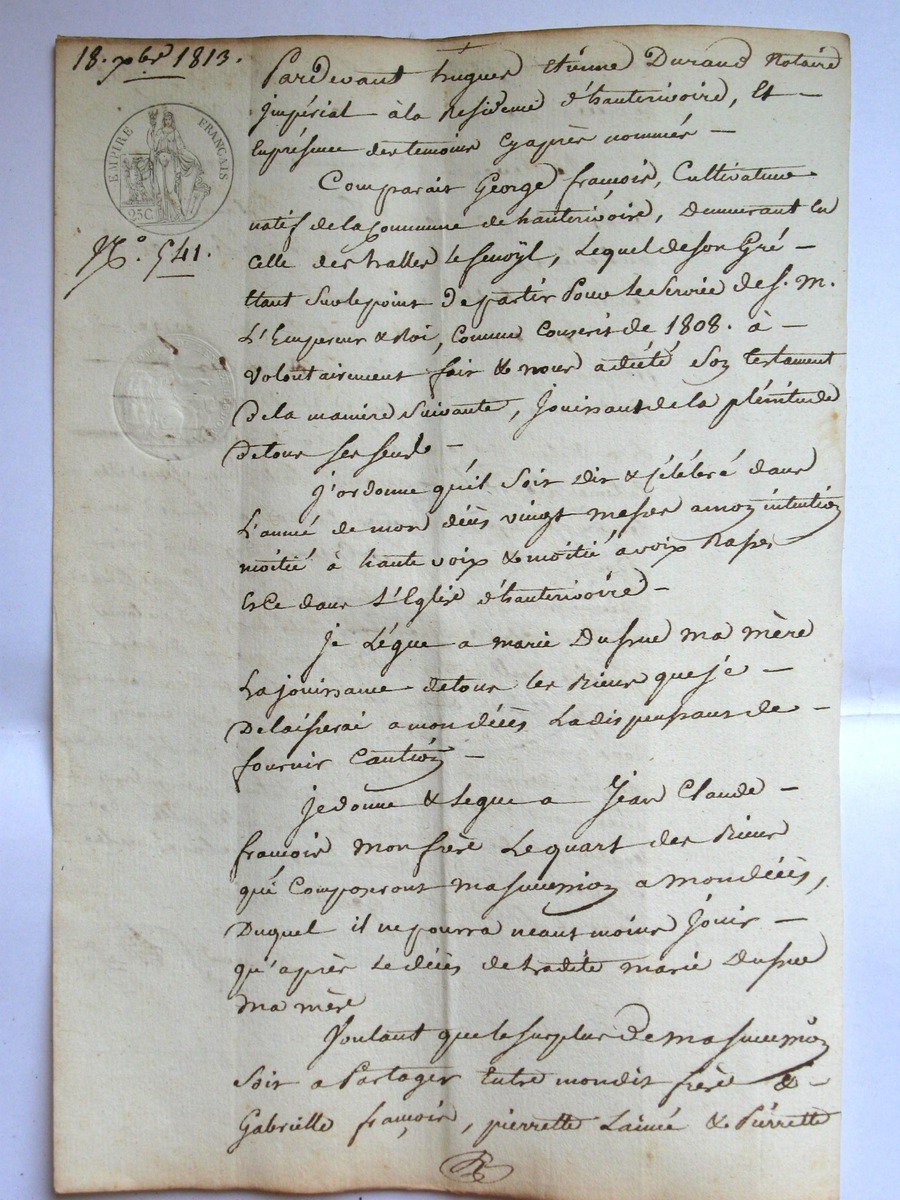 18. xbre 1813.
EMPIRE FRANÇAIS
25 C.
N.° 541.
Pardevant hugues Etienne Durand Notaire
Impérial à la Residence d'hauterivoire, Et —
En présence des temoins Cy après nommés —
Comparait George françois, Cultivateur
natif de la Commune de hauterivoire, demeurant En
Celle des halles le fenoÿl, Lequel de son Gré —
Etant Sur le point de partir Pour Le Service de S. M.
L'Empereur & Roi, Comme Conscrit de 1808. à —
Volontairement fait & nous a dicté Son testament
De la maniére Suivante, Jouissant de la plénitude
de tous ses sens —
J'ordonne qu'il Soit dit & Célébré dans
L'année de mon décès vingt messes a mon intention
moitié à haute voix & moitié a voix Basse
Et Ce dans L'Eglise d'hauterivoire —
Je Légue a marie Dupné ma mère
La jouissance de tous les Biens que je —
Delaisserai a mon décès La dispensant de —
fournir Caution —
Je donne & Legue a Jean Claude —
françois Mon frère Le quart des Biens
qui Composeront ma Succession a mon décès,
Duquel il ne pourra neant moins Jouir —
qu'après Le décès de Ladite marie Dupné
Ma mère
Voulant que le Surplus de ma Succession
Soit a Partager Entre mondit frère & —
Gabrielle françois, pierrette Lainée & Pierrette